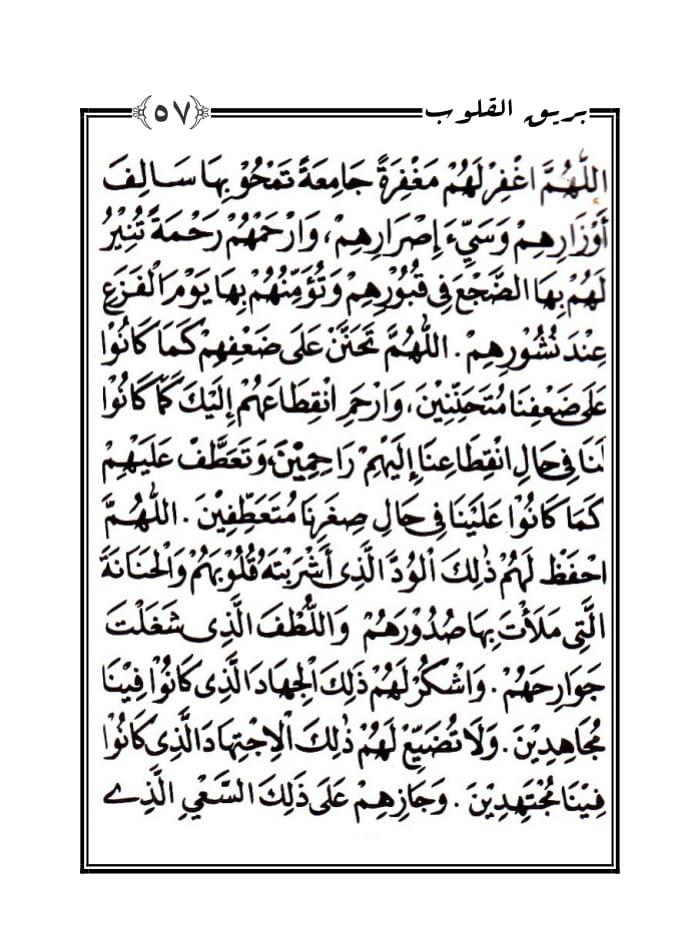 بريق القلوب ﴿٥٧﴾
اللّٰهُمَّ اغْفِرْ لَهُمْ مَغْفِرَةً جَامِعَةً تَمْحُوْ بِهَا سَالِفَ
أَوْزَارِهِمْ وَسَيِّءَ إِصْرَارِهِمْ، وَارْحَمْهُمْ رَحْمَةً تُنِيْرُ
لَهُمْ بِهَا الضَّجْعَ فِى قُبُوْرِهِمْ وَتُؤَمِّنُهُمْ بِهَا يَوْمَ الْفَزَعِ
عِنْدَ نُشُوْرِهِمْ. اللّٰهُمَّ تَحَنَّنْ عَلَى ضَعْفِهِمْ كَمَا كَانُوْا
عَلَى ضَعْفِنَا مُتَحَنِّنِيْنَ، وَارْحَمِ انْقِطَاعَهُمْ إِلَيْكَ كَمَا كَانُوْا
لَنَا فِى حَالِ انْقِطَاعِنَا إِلَيْهِمْ رَاحِمِيْنَ، وَتَعَطَّفْ عَلَيْهِمْ
كَمَا كَانُوْا عَلَيْنَا فِى حَالِ صِغَرِنَا مُتَعَطِّفِيْنَ. اللّٰهُمَّ
احْفَظْ لَهُمْ ذٰلِكَ الْوُدَّ الَّذِى أَشْرَبْتَهُ قُلُوْبَهُمْ وَالْحَنَانَةَ
الَّتِى مَلَأْتَ بِهَا صُدُوْرَهُمْ وَاللُّطْفَ الَّذِى شَغَلْتَ
جَوَارِحَهُمْ. وَاشْكُرْ لَهُمْ ذَلِكَ الْجِهَادَ الَّذِى كَانُوْا فِيْنَا
مُجَاهِدِيْنَ. وَلَا تُضَيِّعْ لَهُمْ ذٰلِكَ الْاِجْتِهَادَ الَّذِى كَانُوْا
فِيْنَا مُجْتَهِدِيْنَ. وَجَازِهِمْ عَلَى ذَلِكَ السَّعْيِ الَّذِے